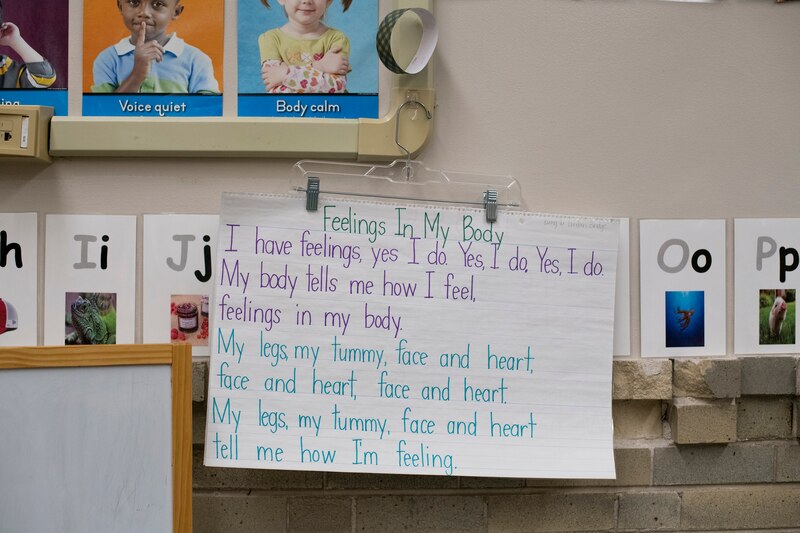 ing
Voice quiet
Body calm
h
Ii
Jj
Oo
Pp
Feelings In My Body
I have feelings, yes I do. Yes, I do, Yes, I do.
My body tells me how I feel,
feelings in my body.
My legs, my tummy, face and heart,
face and heart, face and heart.
My legs, my tummy, face and heart
tell me how I'm feeling.